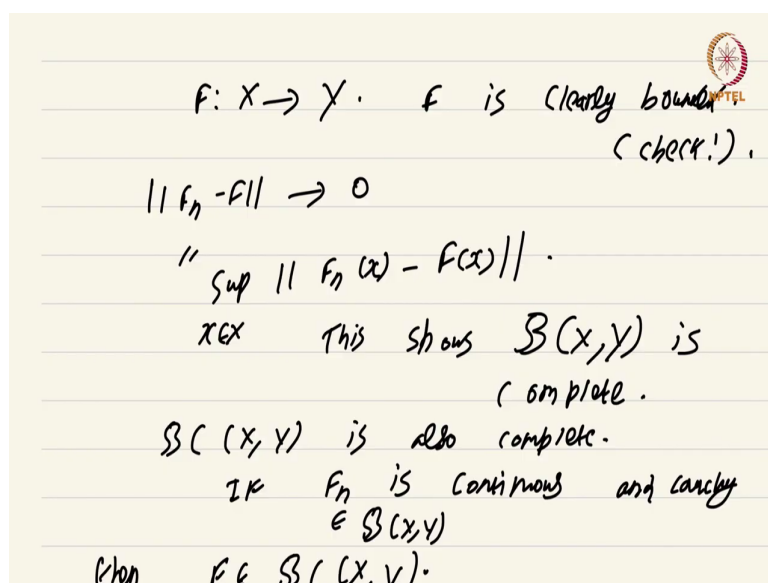 F: X → Y. F is clearly bounded.
NPTEL
(check!).
|| Fn - F || → 0
"
Sup || Fn (x) - F(x) || .
x∈X This shows B(X,Y) is
complete.
BC (X,Y) is also complete.
IF Fn is continous and cauchy
∈ B(X,Y)
then F ∈ BC (X,Y).